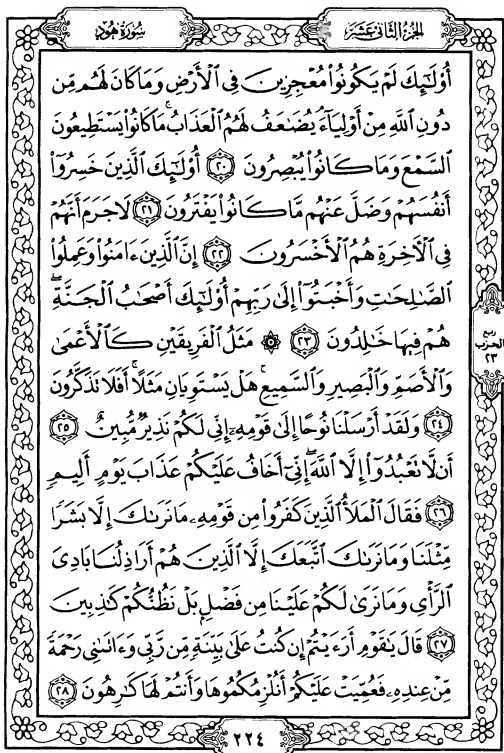 سُورَةُ هُودٍ
الجُزءُ الثَّانِي عَشَرَ
أُوْلَٰٓئِكَ لَمْ يَكُونُواْ مُعْجِزِينَ فِي ٱلْأَرْضِ وَمَا كَانَ لَهُم مِّن
دُونِ ٱللَّهِ مِنْ أَوْلِيَآءَۘ يُضَٰعَفُ لَهُمُ ٱلْعَذَابُۚ مَا كَانُواْ يَسْتَطِيعُونَ
ٱلسَّمْعَ وَمَا كَانُواْ يُبْصِرُونَ ٢٠ أُوْلَٰٓئِكَ ٱلَّذِينَ خَسِرُوٓاْ
أَنفُسَهُمْ وَضَلَّ عَنْهُم مَّا كَانُواْ يَفْتَرُونَ ٢١ لَا جَرَمَ أَنَّهُمْ
فِي ٱلْأٓخِرَةِ هُمُ ٱلْأَخْسَرُونَ ٢٢ إِنَّ ٱلَّذِينَ ءَامَنُواْ وَعَمِلُواْ
ٱلصَّٰلِحَٰتِ وَأَخْبَتُوٓاْ إِلَىٰ رَبِّهِمْ أُوْلَٰٓئِكَ أَصْحَٰبُ ٱلْجَنَّةِۖ
هُمْ فِيهَا خَٰلِدُونَ ٢٣ ۞ مَثَلُ ٱلْفَرِيقَيْنِ كَٱلْأَعْمَىٰ
وَٱلْأَصَمِّ وَٱلْبَصِيرِ وَٱلسَّمِيعِۚ هَلْ يَسْتَوِيَانِ مَثَلًاۚ أَفَلَا تَذَكَّرُونَ
٢٤ وَلَقَدْ أَرْسَلْنَا نُوحًا إِلَىٰ قَوْمِهِۦٓ إِنِّي لَكُمْ نَذِيرٌ مُّبِينٌ ٢٥
أَن لَّا تَعْبُدُوٓاْ إِلَّا ٱللَّهَۖ إِنِّيٓ أَخَافُ عَلَيْكُمْ عَذَابَ يَوْمٍ أَلِيمٍ
٢٦ فَقَالَ ٱلْمَلَأُ ٱلَّذِينَ كَفَرُواْ مِن قَوْمِهِۦ مَا نَرَىٰكَ إِلَّا بَشَرًا
مِّثْلَنَا وَمَا نَرَىٰكَ ٱتَّبَعَكَ إِلَّا ٱلَّذِينَ هُمْ أَرَاذِلُنَا بَادِيَ
ٱلرَّأْيِ وَمَا نَرَىٰ لَكُمْ عَلَيْنَا مِن فَضْلٍۭ بَلْ نَظُنُّكُمْ كَٰذِبِينَ
٢٧ قَالَ يَٰقَوْمِ أَرَءَيْتُمْ إِن كُنتُ عَلَىٰ بَيِّنَةٍ مِّن رَّبِّي وَءَاتَىٰنِي رَحْمَةً
مِّنْ عِندِهِۦ فَعُمِّيَتْ عَلَيْكُمْ أَنُلْزِمُكُمُوهَا وَأَنتُمْ لَهَا كَٰرِهُونَ ٢٨
ربع
الحزب
٢٣
٢٢٤